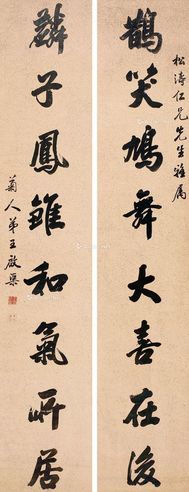 松濤仁兄先生雅属
鵲笑鳩舞大喜在後
麟子鳳雛和氣所居
菊人弟王啟渠